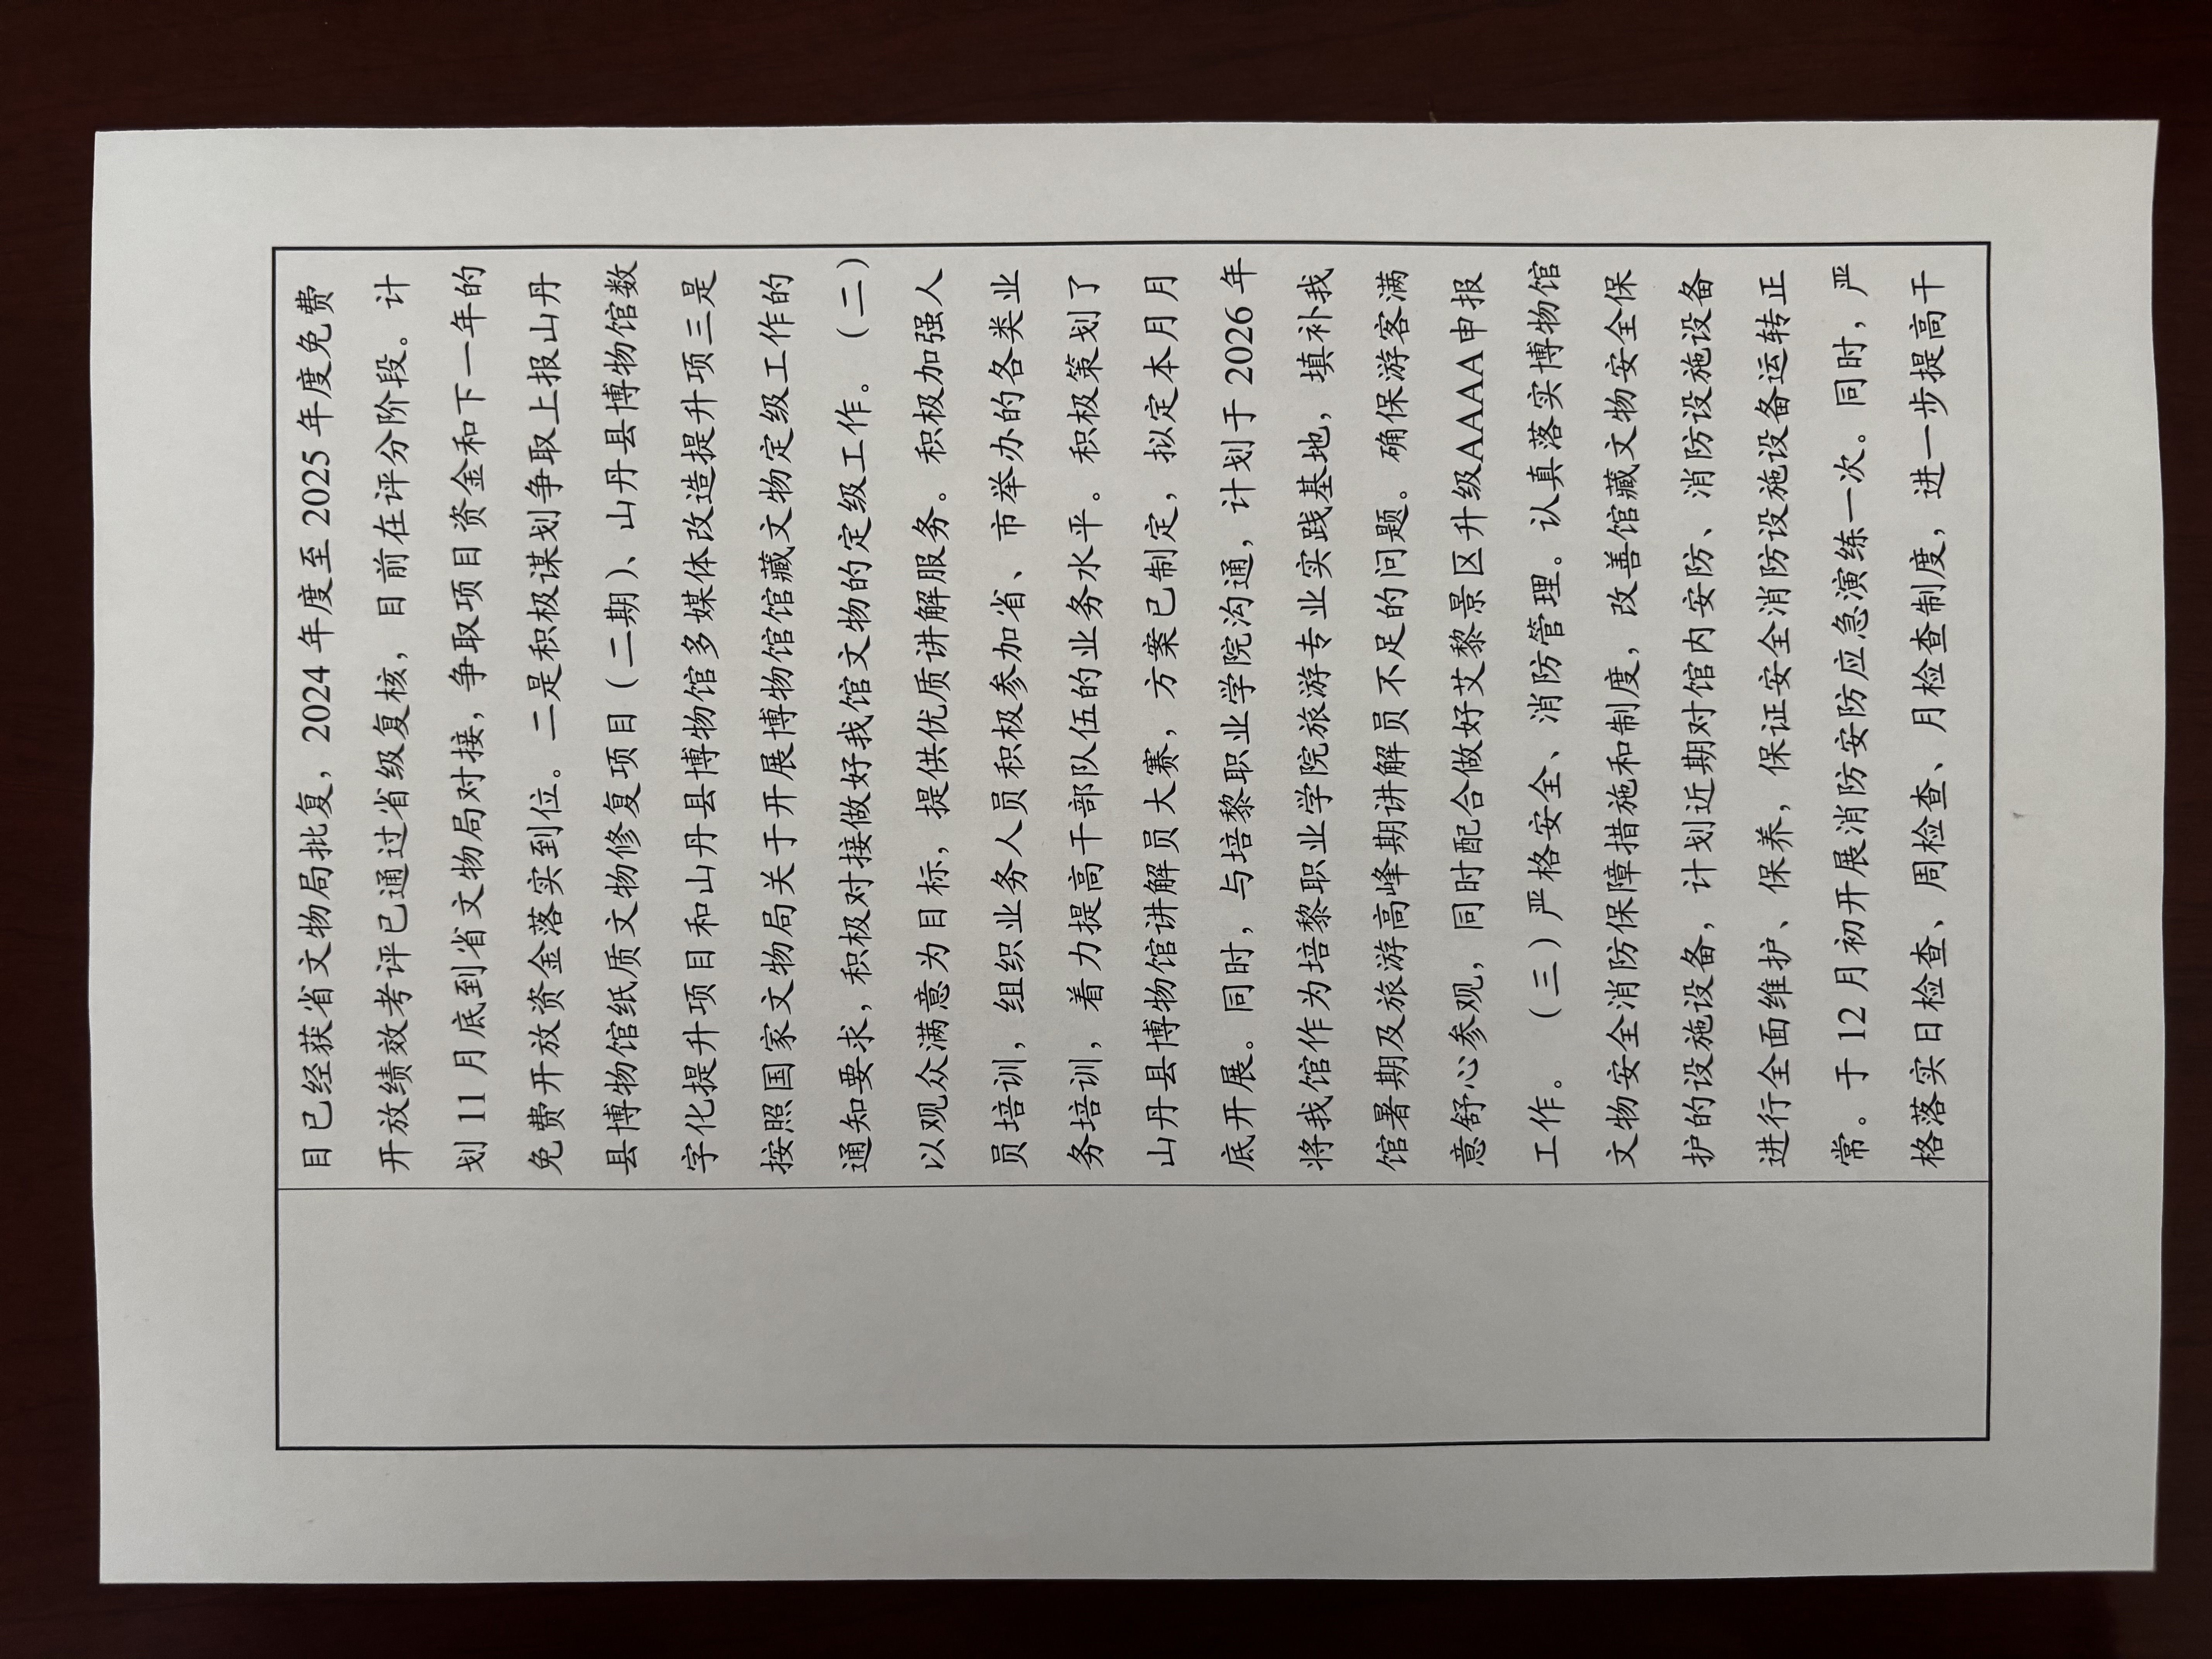 目已经获省文物局批复，2024 年度至 2025 年度免费
开放绩效考评已通过省级复核，目前在评分阶段。计
划 11 月底到省文物局对接，争取项目资金和下一年的
免费开放资金落实到位。二是积极谋划争取上报山丹
县博物馆纸质文物修复项目（二期）、山丹县博物馆数
字化提升项目和山丹县博物馆多媒体改造提升项三是
按照国家文物局关于开展博物馆馆藏文物定级工作的
通知要求，积极对接做好我馆文物的定级工作。（二）
以观众满意为目标，提供优质讲解服务。积极加强人
员培训，组织业务人员积极参加省、市举办的各类业
务培训，着力提高干部队伍的业务水平。积极策划了
山丹县博物馆讲解员大赛，方案已制定，拟定本月月
底开展。同时，与培黎职业学院沟通，计划于 2026 年
将我馆作为培黎职业学院旅游专业实践基地，填补我
馆暑期及旅游高峰期讲解员不足的问题。确保游客满
意舒心参观，同时配合做好艾黎景区升级AAAA申报
工作。（三）严格安全、消防管理。认真落实博物馆
文物安全消防保障措施和制度，改善馆藏文物安全保
护的设施设备，计划近期对馆内安防、消防设施设备
进行全面维护、保养，保证安全消防设施设备运转正
常。于 12 月初开展消防安防应急演练一次。同时，严
格落实日检查、周检查、月检查制度，进一步提高干